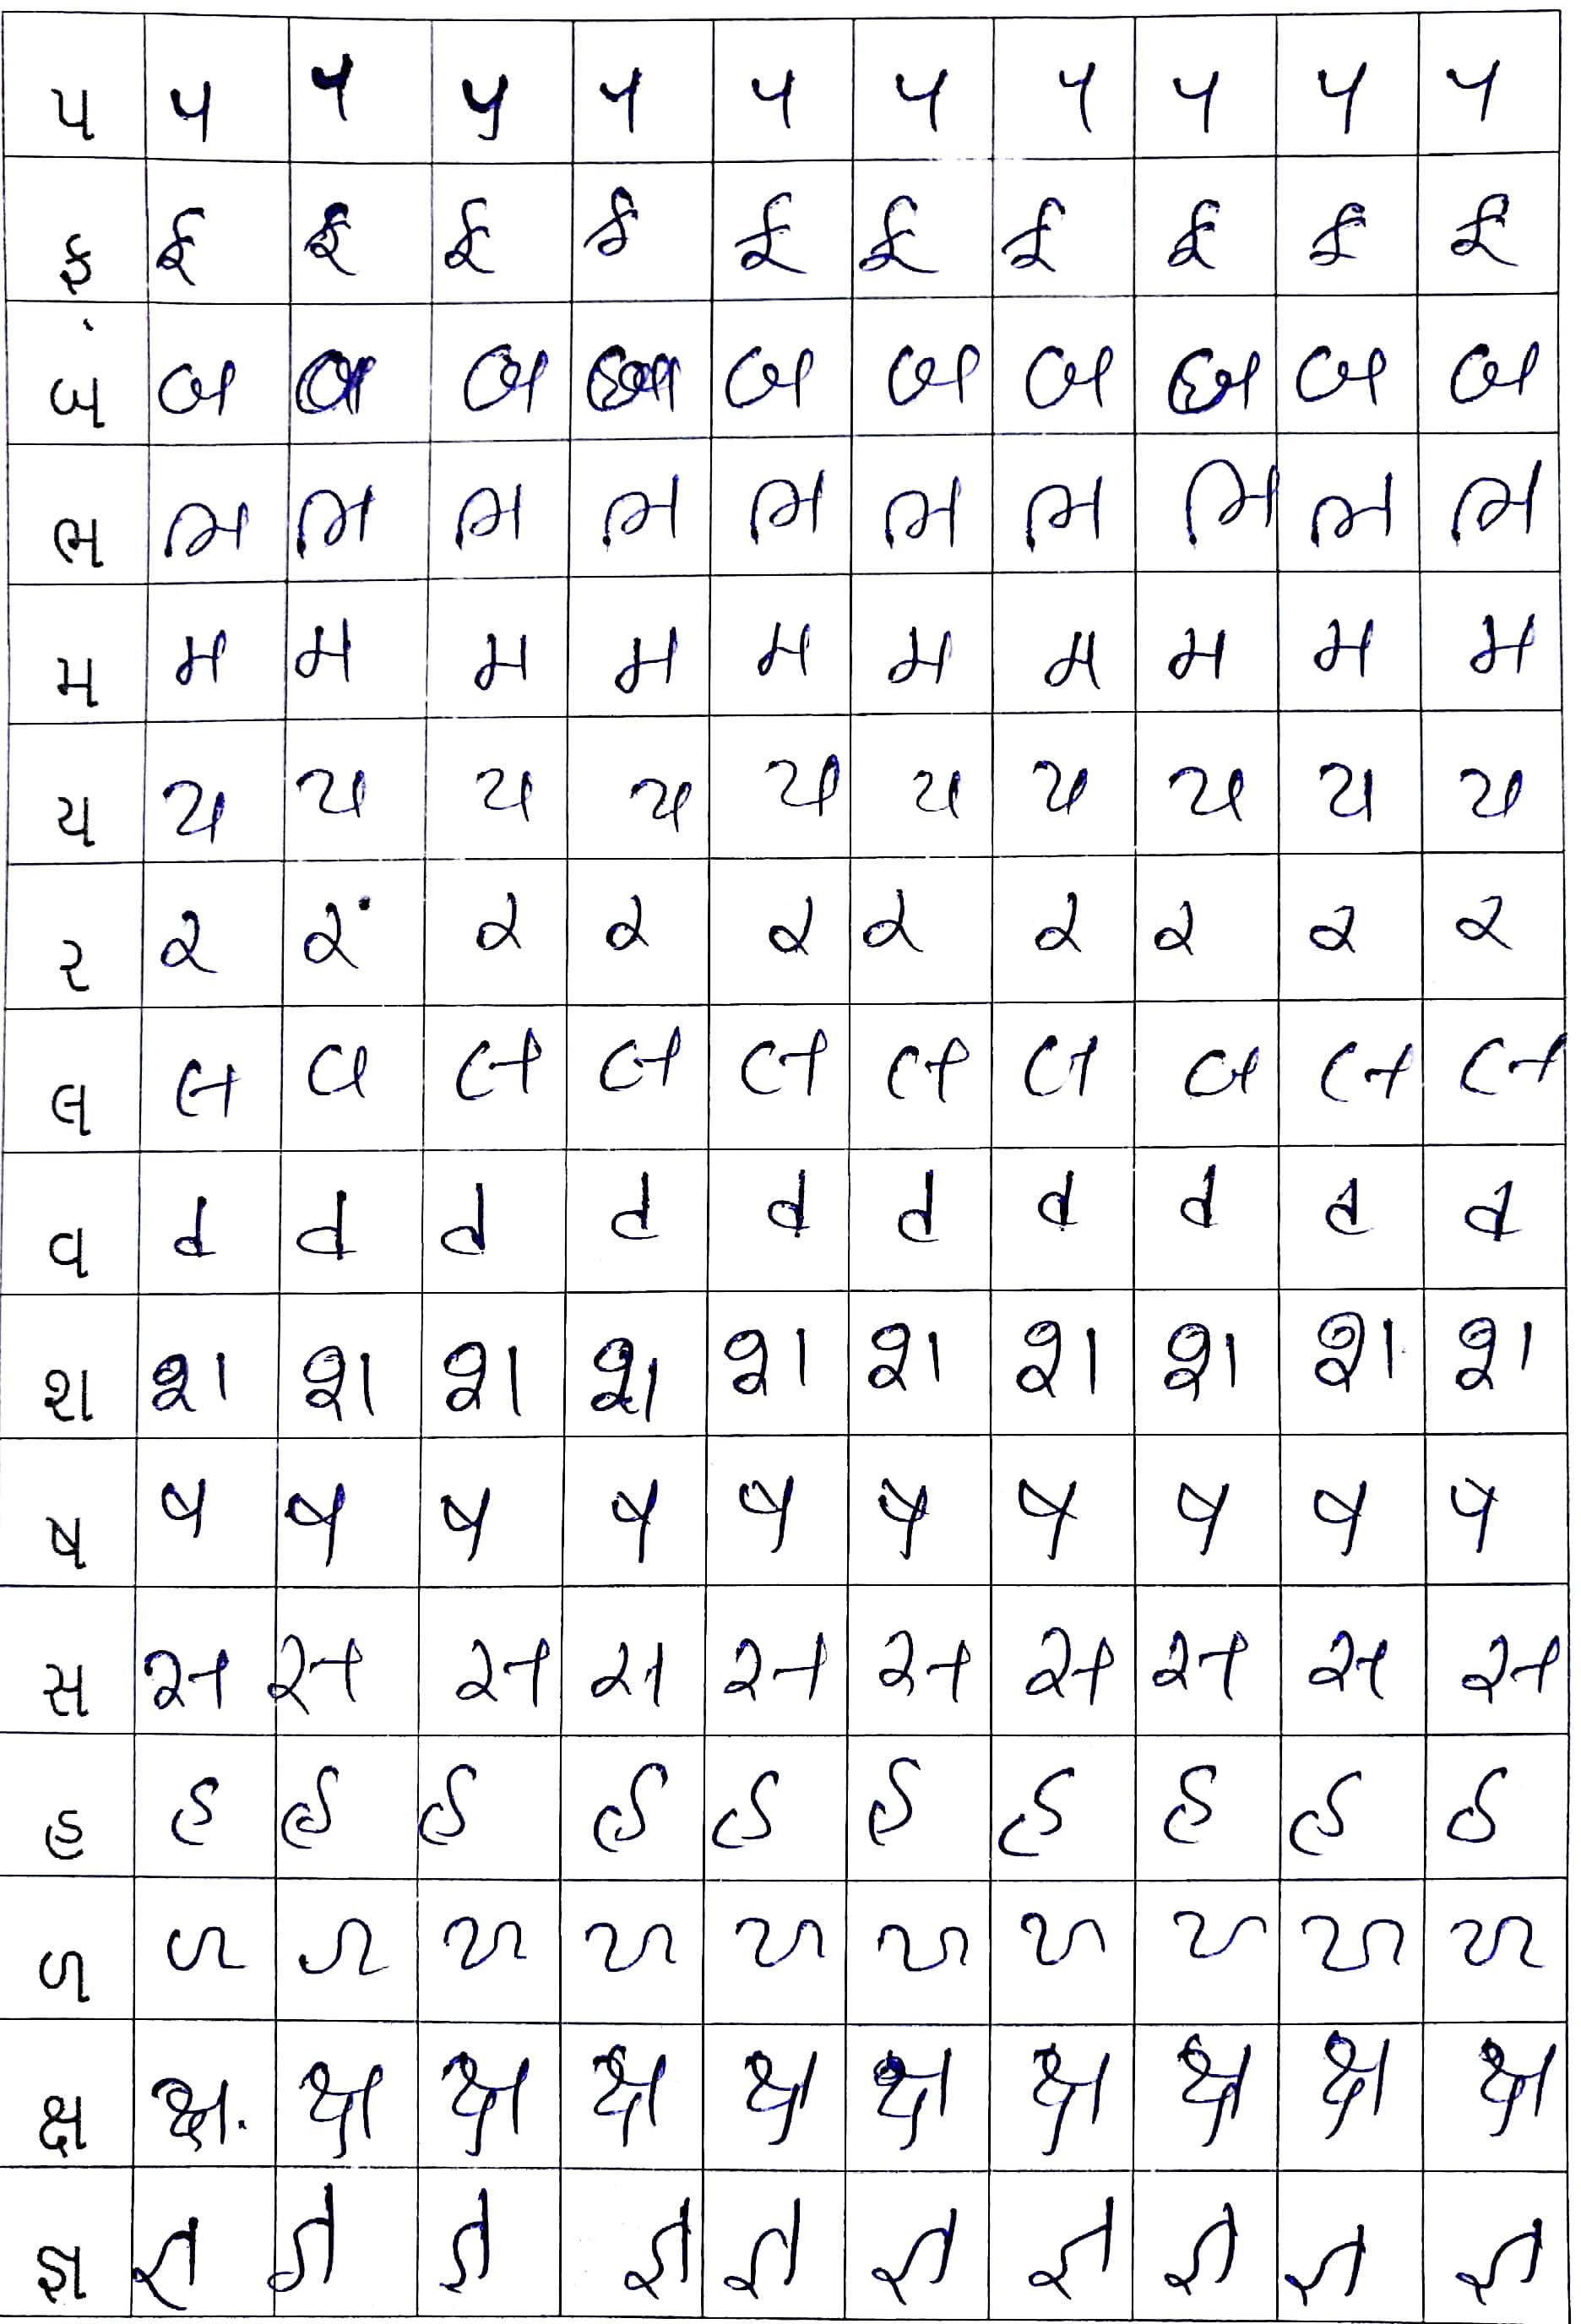 પ પ પ પ પ પ પ પ પ પ પ
ફ ફ ફ ફ ફ ફ ફ ફ ફ ફ ફ
બ બ બ બ બ બ બ બ બ બ બ
ભ ભ ભ ભ ભ ભ ભ ભ ભ ભ ભ
મ મ મ મ મ મ મ મ મ મ મ
ય ય ય ય ય ય ય ય ય ય ય
ર ર ર ર ર ર ર ર ર ર ર
લ લ લ લ લ લ લ લ લ લ લ
વ વ વ વ વ વ વ વ વ વ વ
શ શ શ શ શ શ શ શ શ શ શ
ષ ષ ષ ષ ષ ષ ષ ષ ષ ષ ષ
સ સ સ સ સ સ સ સ સ સ સ
હ હ હ હ હ હ હ હ હ હ હ
ળ ળ ળ ળ ળ ળ ળ ળ ળ ળ ળ
ક્ષ ક્ષ ક્ષ ક્ષ ક્ષ ક્ષ ક્ષ ક્ષ ક્ષ ક્ષ ક્ષ
જ્ઞ જ્ઞ જ્ઞ જ્ઞ જ્ઞ જ્ઞ જ્ઞ જ્ઞ જ્ઞ જ્ઞ જ્ઞ